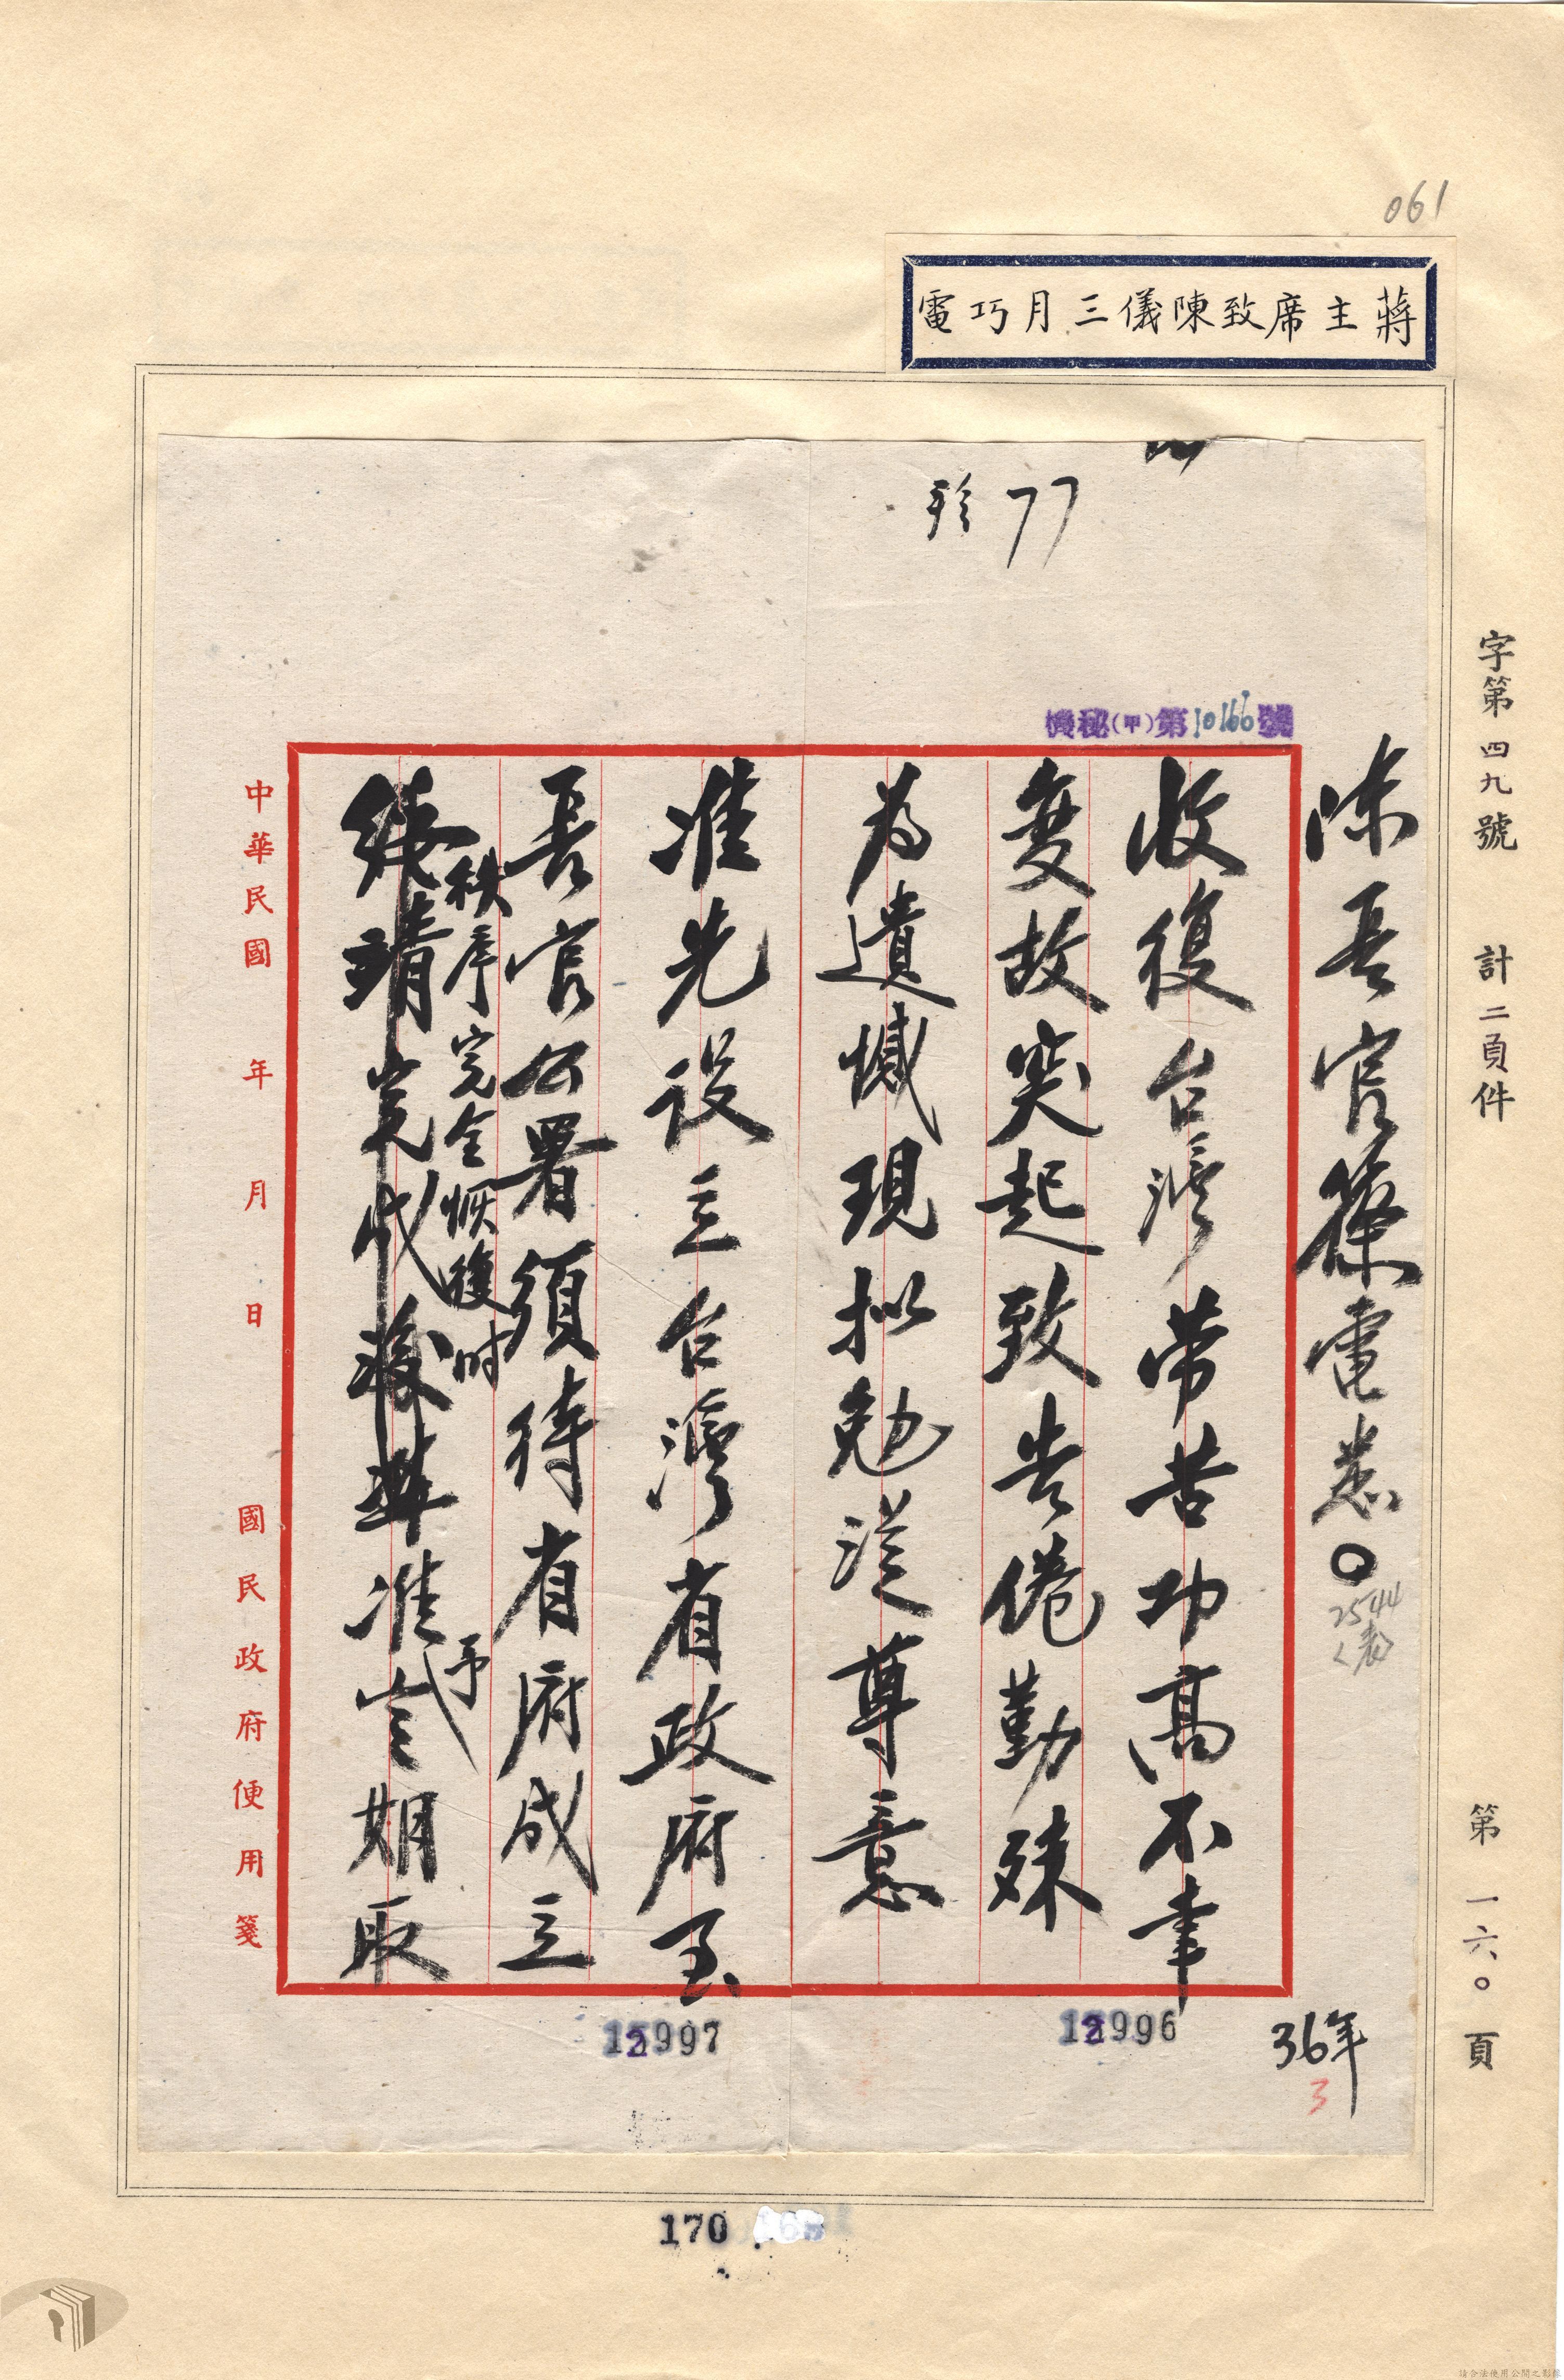 061
蔣主席致陳儀三月巧電
字第四九號 計二頁件 第一六〇頁
77
機秘(甲)第10166號
陳長官篠電悉〇
2544
〈表〉
收復台灣勞苦功高不幸
變故突起致告倦勤殊
為遺憾現擬勉從尊意
准先設立台灣省政府至
長官公署須待省府成立
秩序完全恢復時
綏靖完成後準准定期取
予
中華民國 年 月 日 國民政府便用箋
12996
12997
36年
3
170
請合法使用公開之影像